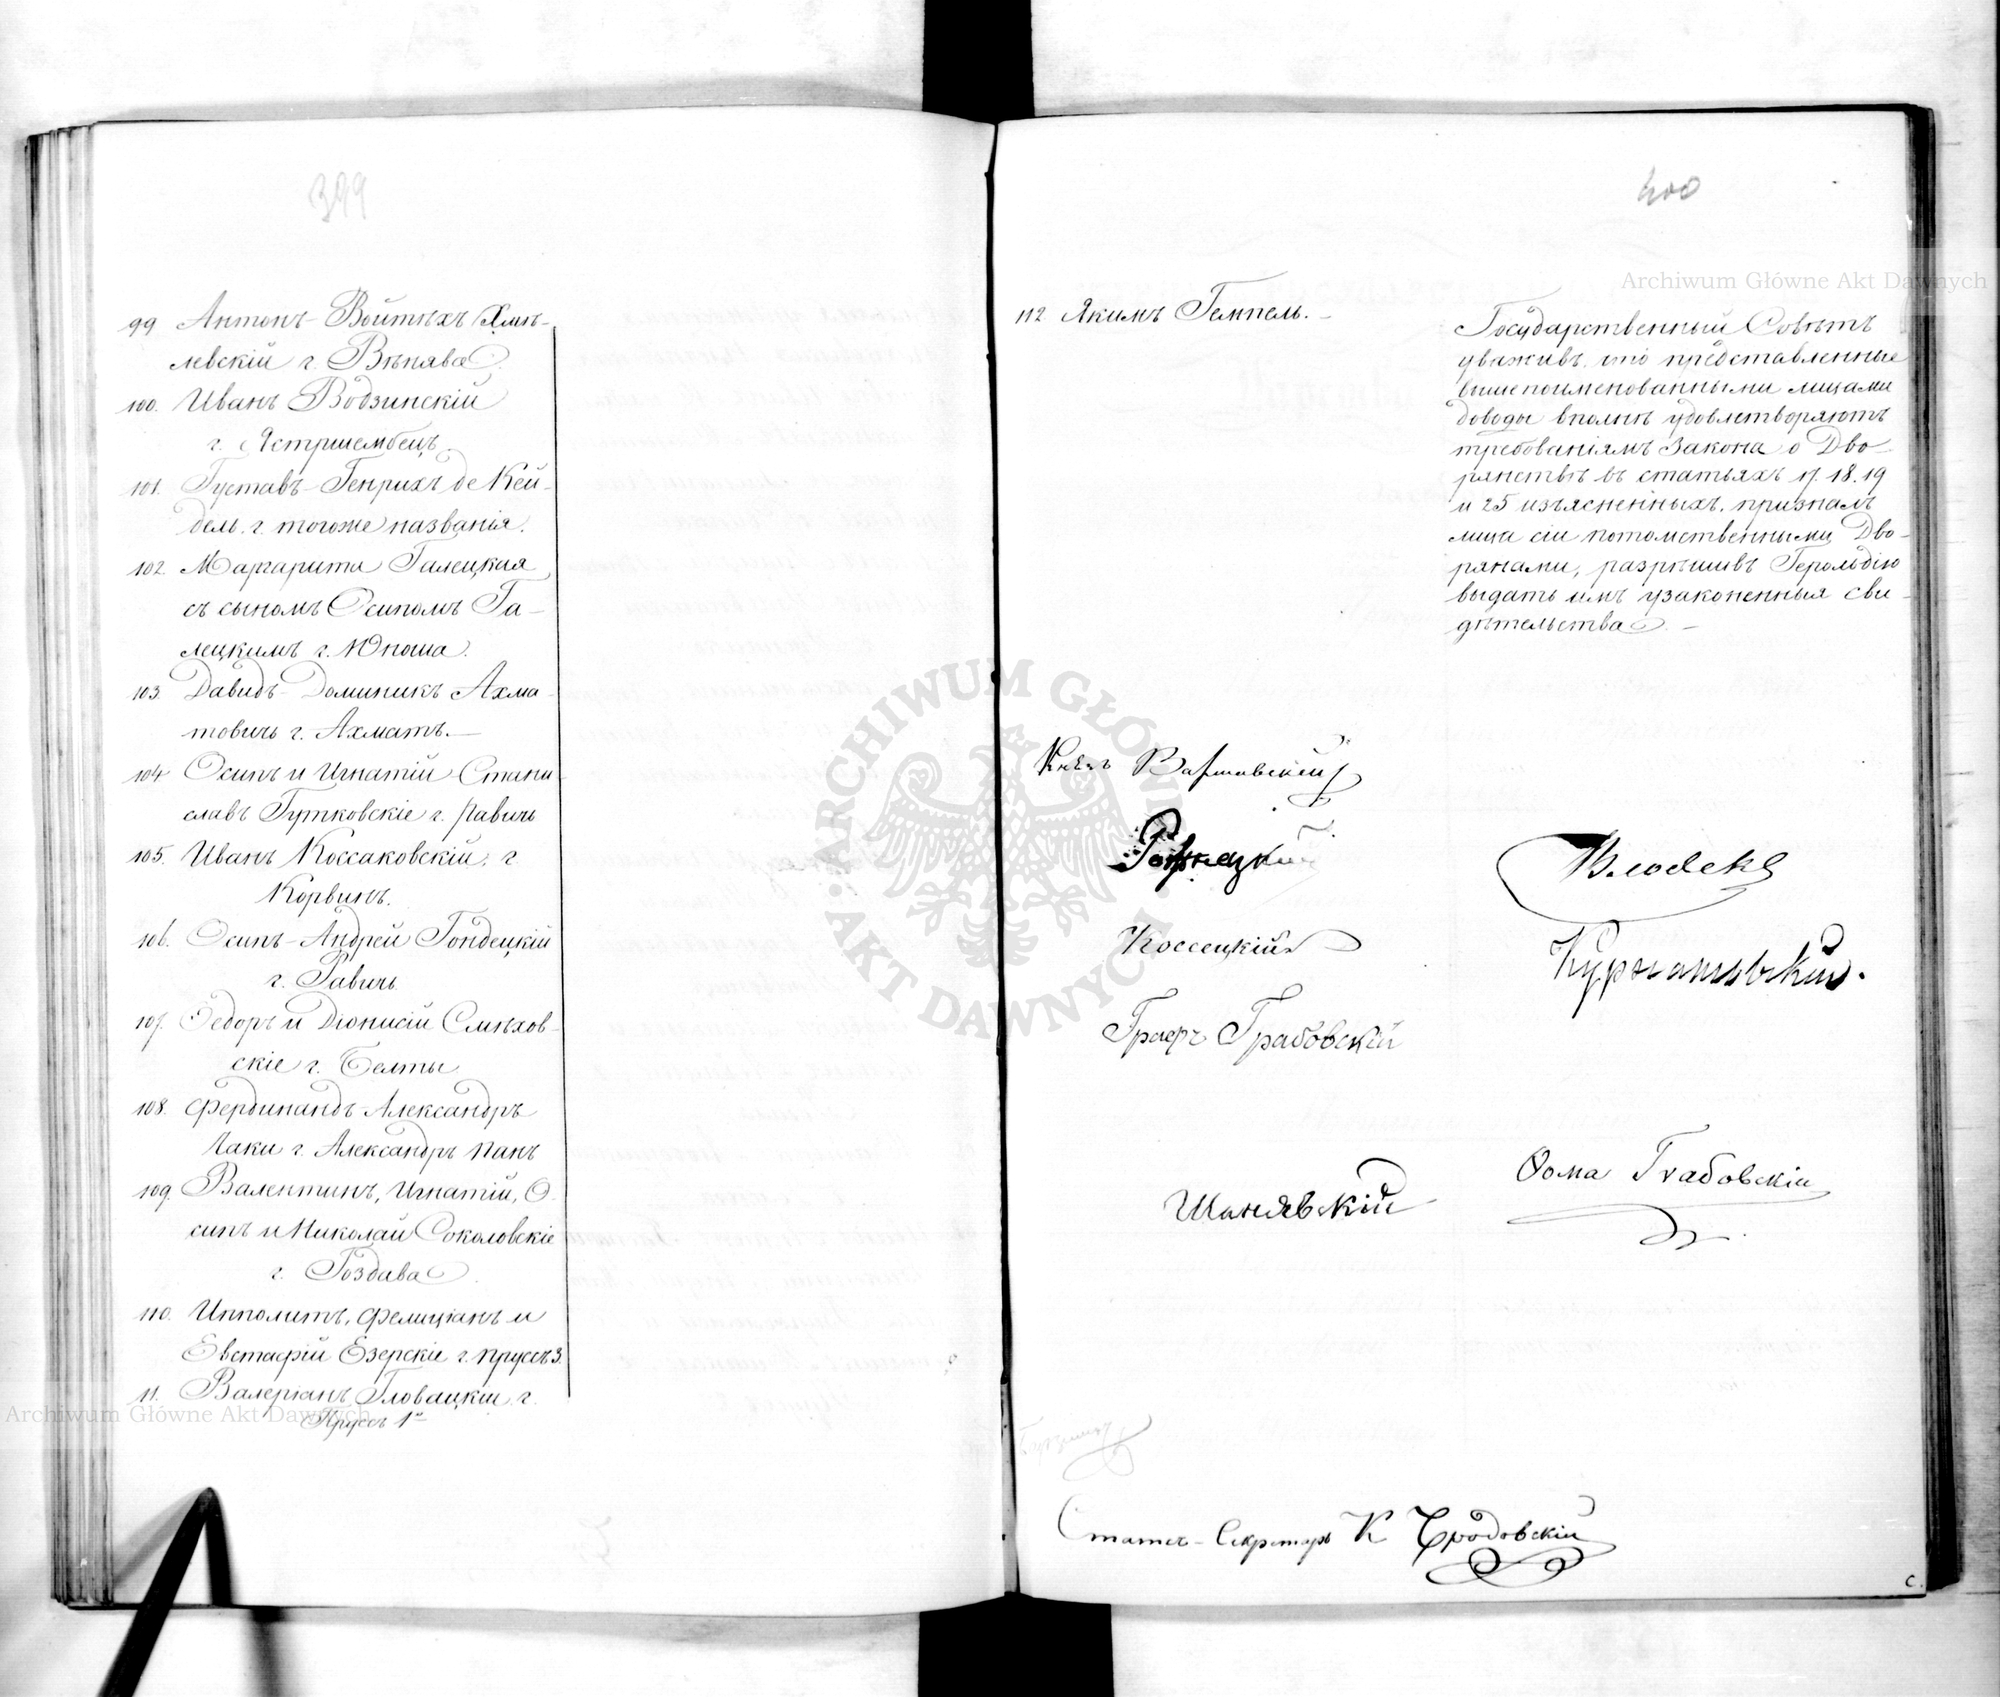 399
99 Антонъ-Войтѣхъ Хмѣ-
левскій г. Вѣнява
100. Иванъ Водзинскій
г. Ястршембецъ
101. Густавъ-Генрихъ де Кей-
дель. г. тогоже названія.
102. Маргарита Галецкая
съ сыномъ Осипомъ Га-
лецкимъ г. Юноша.
103 Давидъ-Доминикъ Ахма-
товичь г. Ахматъ.—
104 Осипъ и Игнатій Стани-
славъ Гутковскіе г. Равичь
105. Иванъ Коссаковскій, г.
Корвинъ.
106. Осипъ-Андрей Гондецкій
г. Равичь
107. Ѳедоръ и Діонисій Смѣхов-
скіе г. Белты
108. Фердинандъ Александръ
Чаки г. Александръ Панъ
109. Валентинъ, Игнатій, О-
сипъ и Николай Соколовскіе
г. Гоздава
110. Ипполитъ, Фелиціанъ и
Евстафій Езерскіе г. Пруссъ 3.
11. Валеріанъ Гловацкій г.
Пруссъ 1º
400
112 Якимъ Гемпель.—
Государственный Совѣтъ
уваживъ, что представленные
вышепоименованными лицами
доводы вполнѣ удовлетворяютъ
требованіямъ Закона о Дво-
рянствѣ въ статьяхъ 17. 18. 19
и 25 изъясненныхъ, призналъ
лица сіи потомственными Дво-
рянами, разрѣшивъ Герольдію
выдать имъ узаконенныя сви-
дѣтельства.—
Князь Варшавскій
Рожнецкій
Влодекъ
Коссецкій
Графъ Грабовскій
Шанявскій
Ѳома Грабовскій
Статсъ-Секретарь К Бродовскій
с.
Archiwum Główne Akt Dawnych
Archiwum Główne Akt Dawnych
ARCHIWUM GŁÓWNE
AKT DAWNYCH